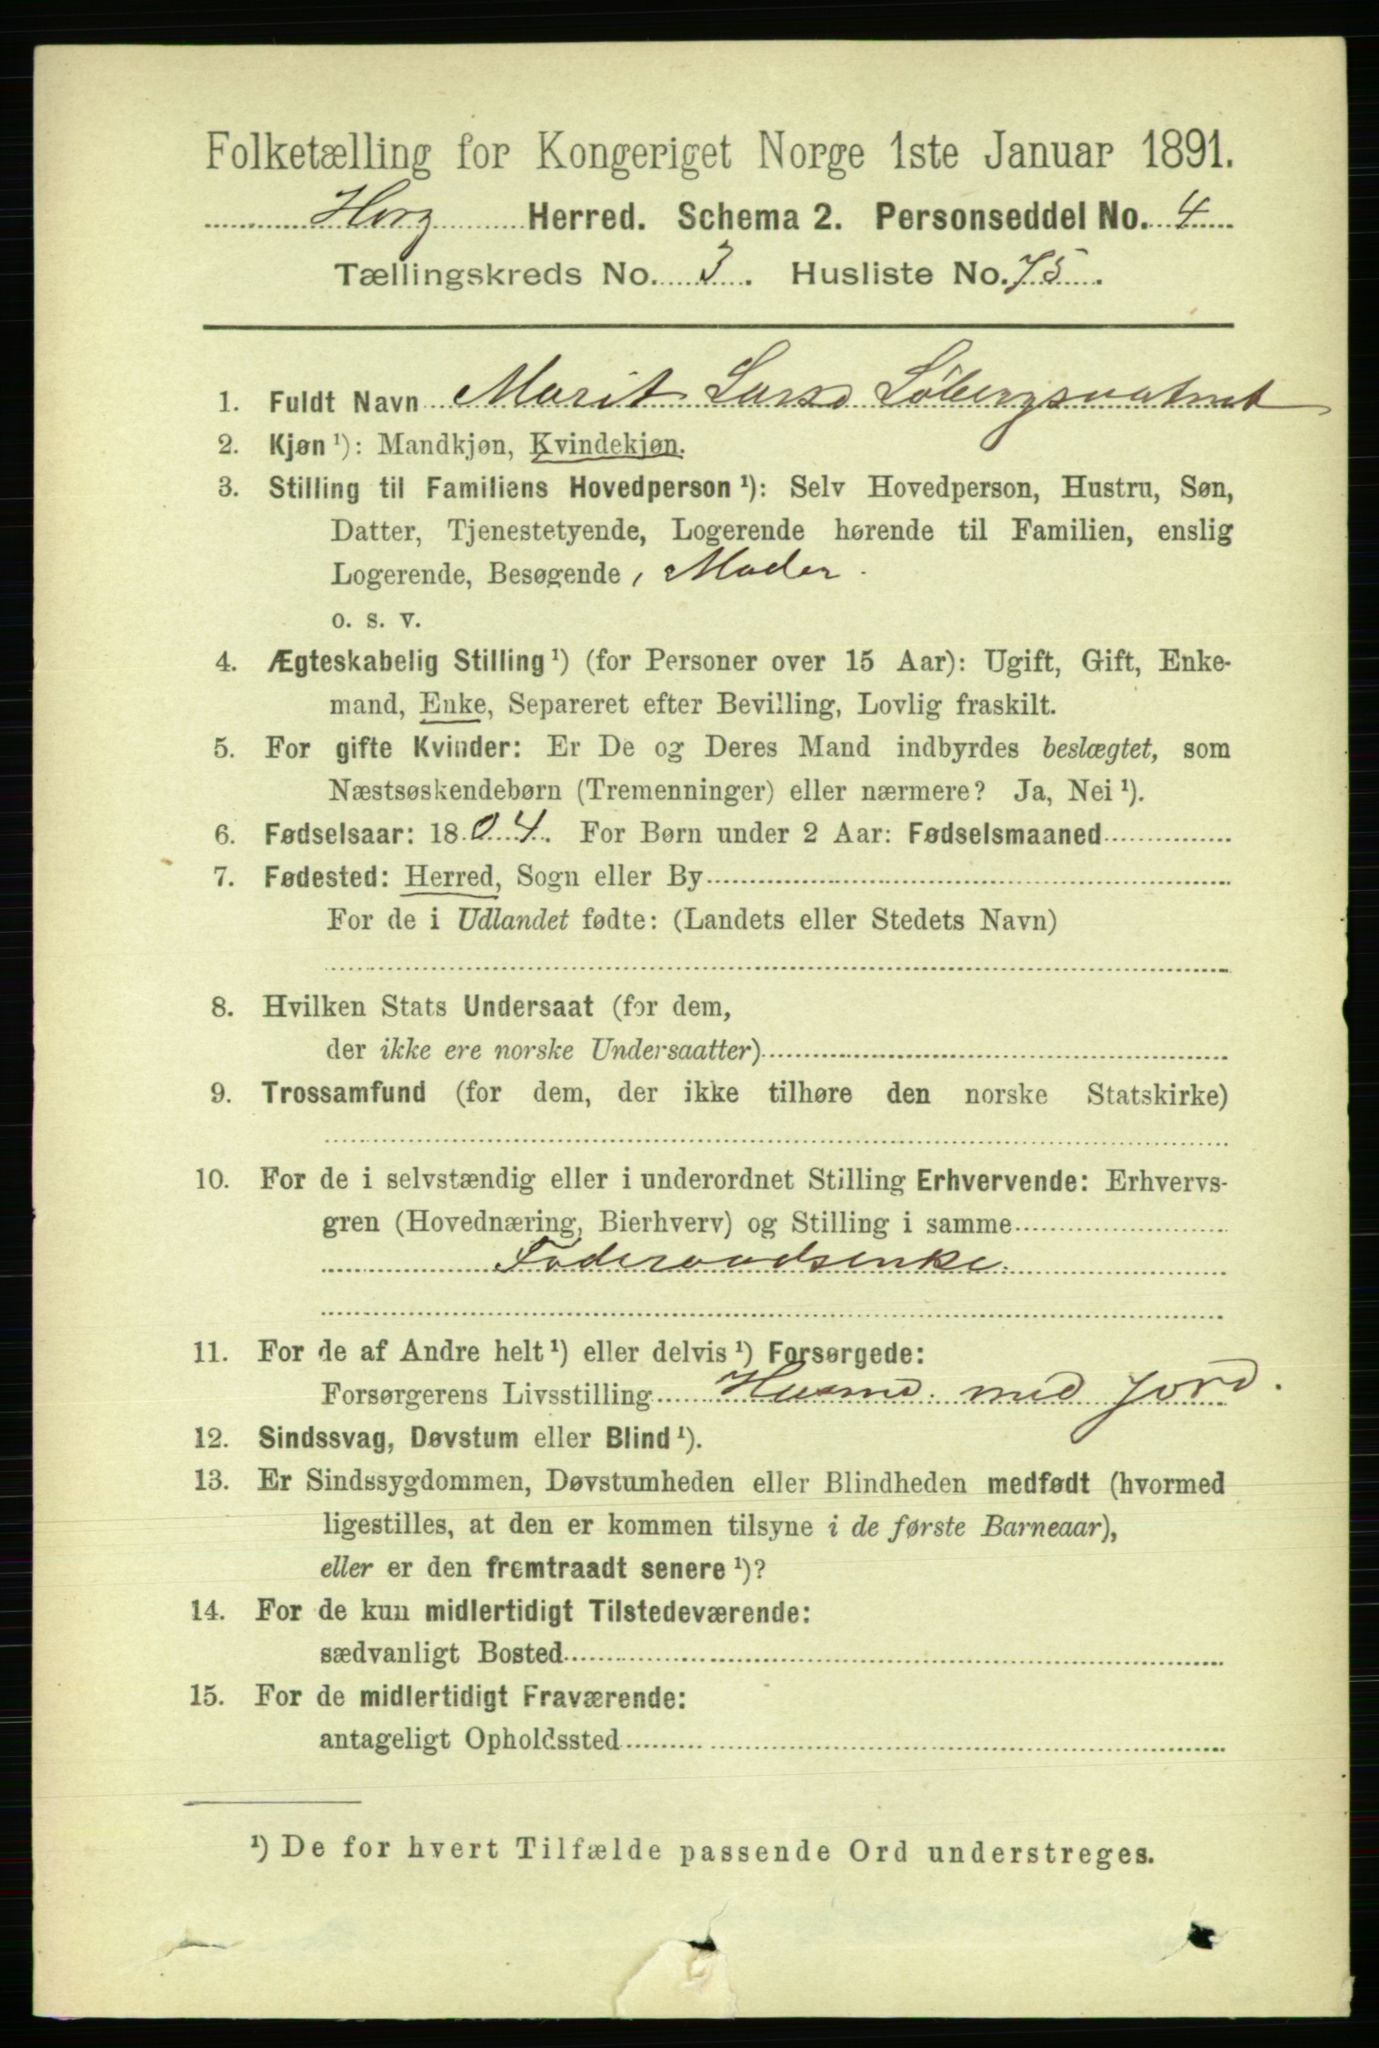 Folketælling for Kongeriget Norge 1ste Januar 1891.
Horg Herred. Schema 2. Personseddel No. 4
Tællingskreds No. 3. Husliste No. 75.
1. Fuldt Navn Marit Larsd Løbergsvatnet
2. Kjøn¹): Mandkjøn, Kvindekjøn.
3. Stilling til Familiens Hovedperson¹): Selv Hovedperson, Hustru, Søn,
Datter, Tjenestetyende, Logerende hørende til Familien, enslig
Logerende, Besøgende, Moder.
o. s. v.
4. Ægteskabelig Stilling¹) (for Personer over 15 Aar): Ugift, Gift, Enke-
mand, Enke, Separeret efter Bevilling, Lovlig fraskilt.
5. For gifte Kvinder: Er De og Deres Mand indbyrdes beslægtet, som
Næstsøskendebørn (Tremenninger) eller nærmere? Ja, Nei¹).
6. Fødselsaar: 1804. For Børn under 2 Aar: Fødselsmaaned
7. Fødested: Herred, Sogn eller By
For de i Udlandet fødte: (Landets eller Stedets Navn)
8. Hvilken Stats Undersaat (for dem,
der ikke ere norske Undersaatter)
9. Trossamfund (for dem, der ikke tilhøre den norske Statskirke)
10. For de i selvstændig eller i underordnet Stilling Erhvervende: Erhvervs-
gren (Hovednæring, Bierhverv) og Stilling i samme
Føderaadsenke.
11. For de af Andre helt¹) eller delvis¹) Forsørgede:
Forsørgerens Livsstilling Husmd. med Jord.
12. Sindssvag, Døvstum eller Blind¹).
13. Er Sindssygdommen, Døvstumheden eller Blindheden medfødt (hvormed
ligestilles, at den er kommen tilsyne i de første Barneaar),
eller er den fremtraadt senere¹)?
14. For de kun midlertidigt Tilstedeværende:
sædvanligt Bosted
15. For de midlertidigt Fraværende:
antageligt Opholdssted
¹) De for hvert Tilfælde passende Ord understreges.